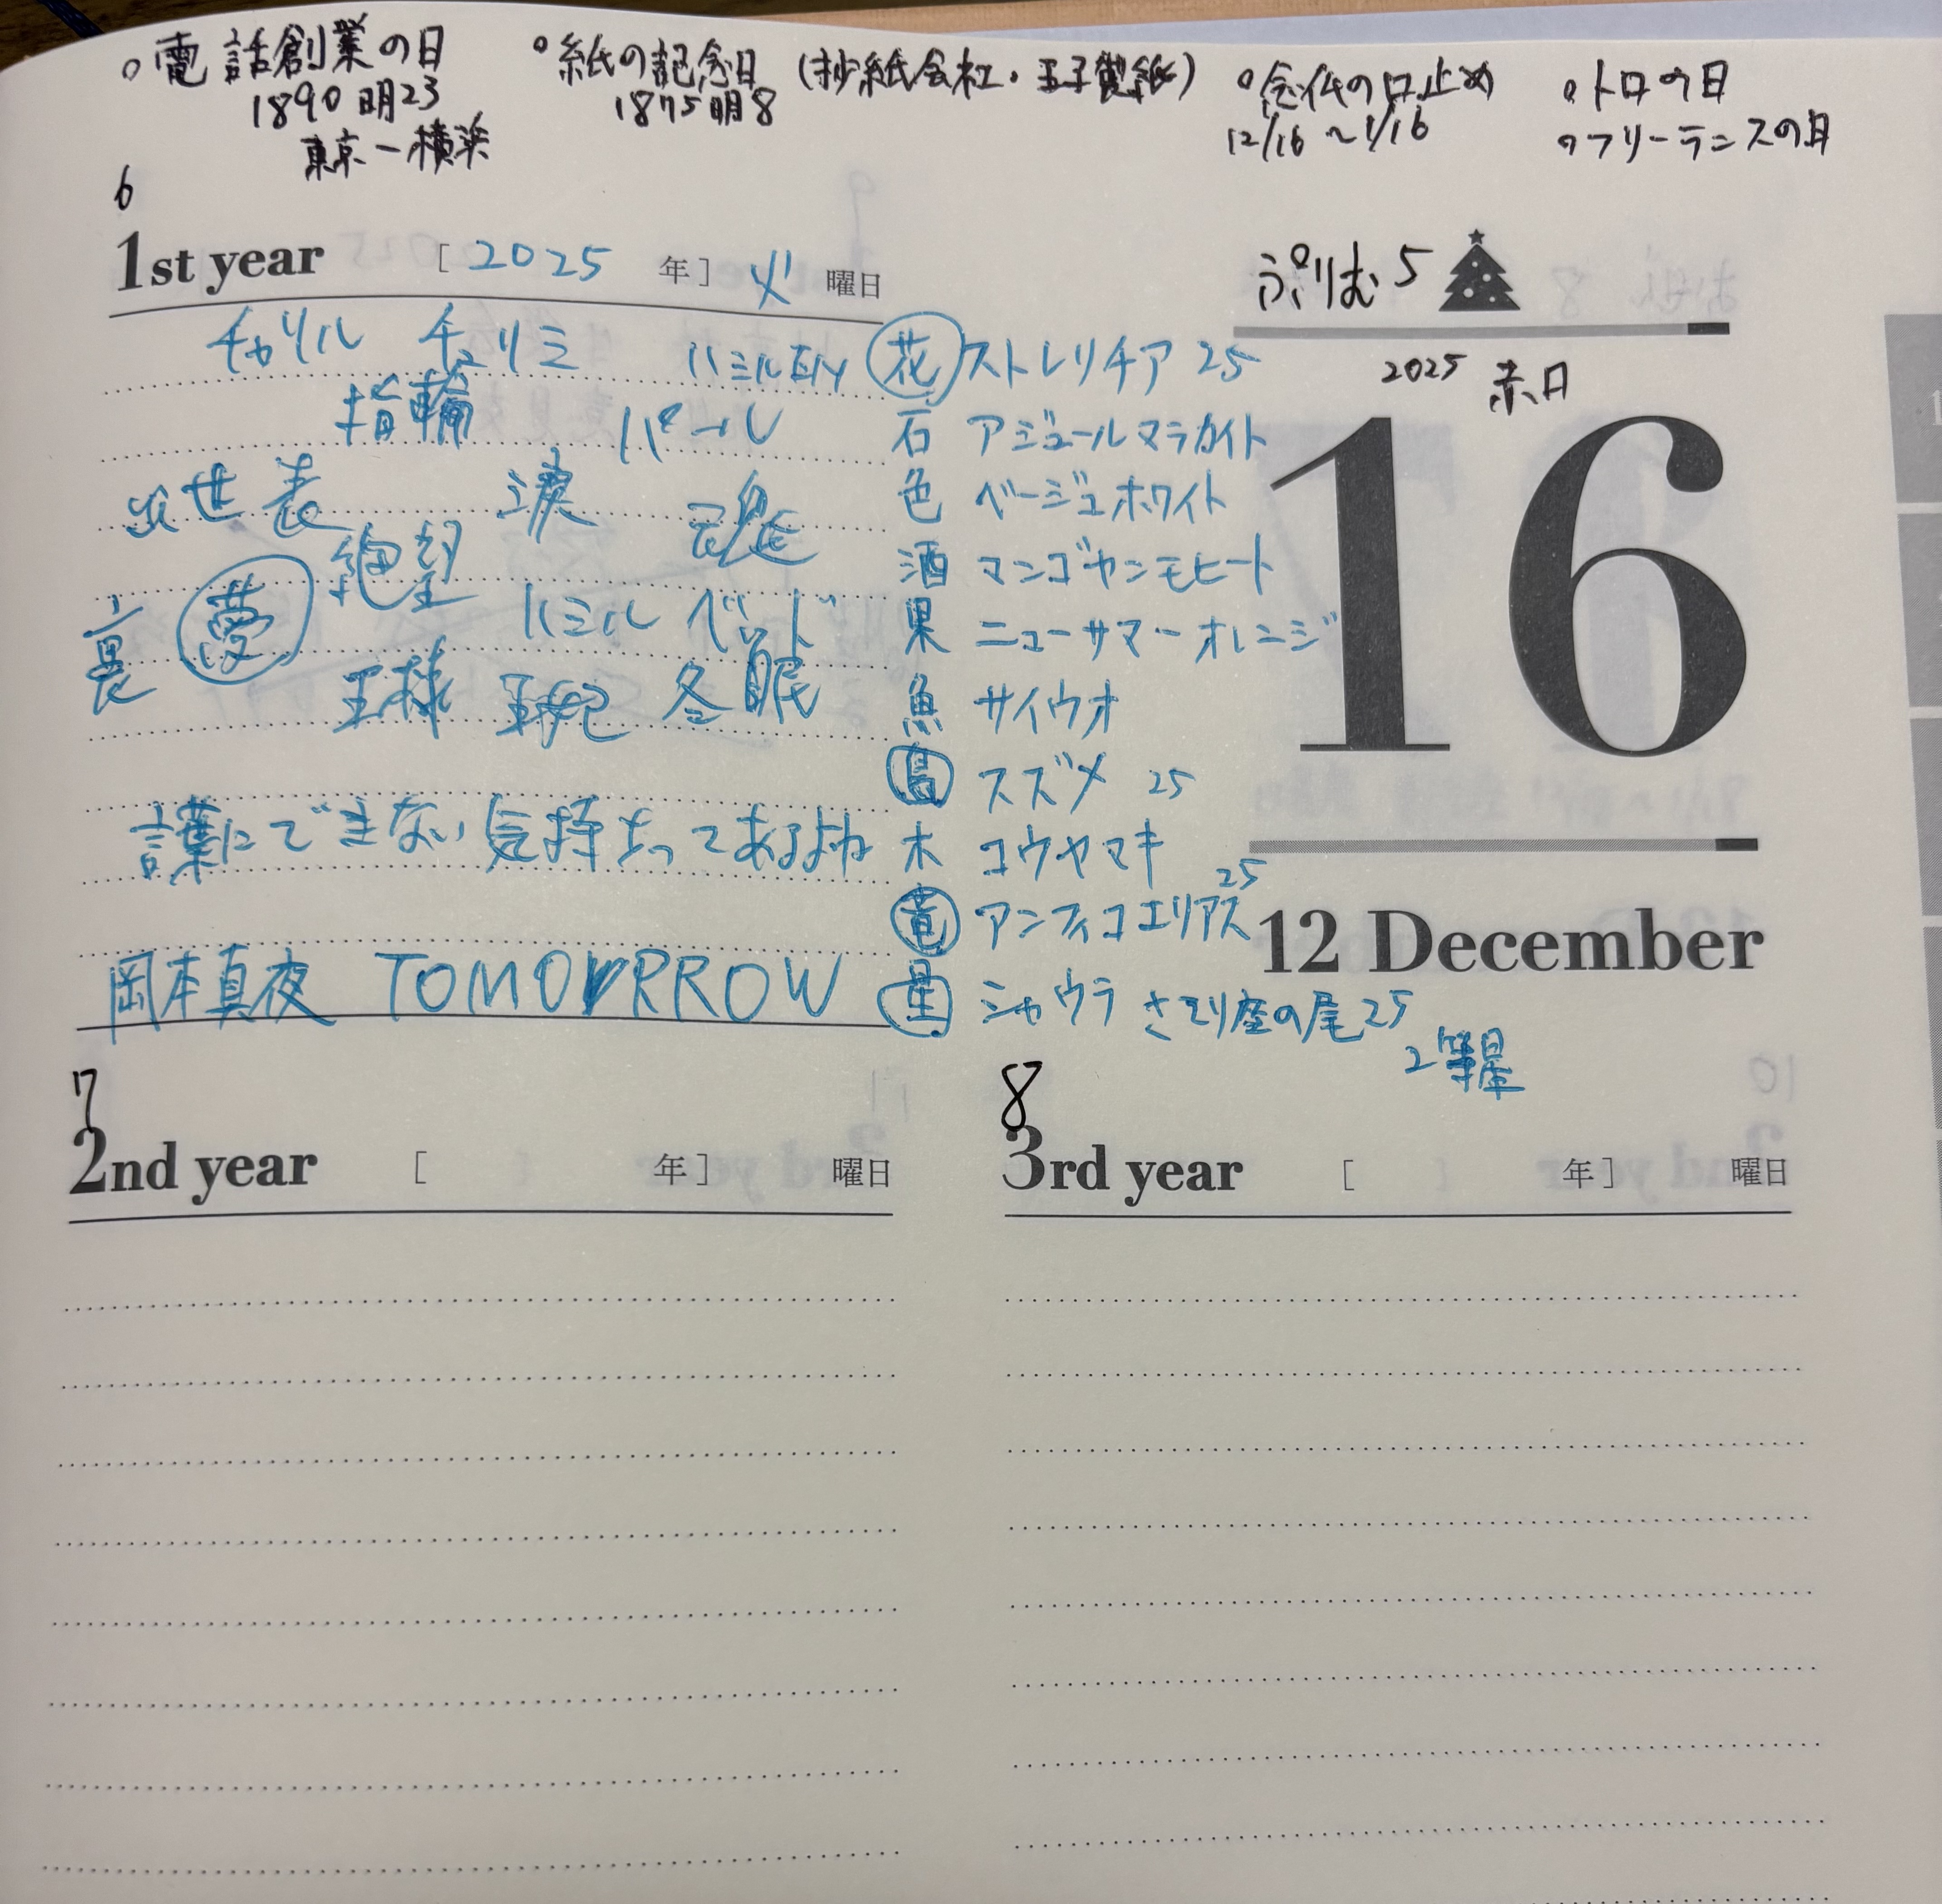 ○電話創業の日
1890 明23
東京ー横浜
○紙の記念日 (抄紙会社・王子製紙)
1875 明8
○念仏の口止め
12/16 〜 1/16
○トロの日
○フリーランスの日
6
1st year [ 2025 年 ] 火 曜日
チャリル チュリミ ハミルEly
指輪 パール
出世 表 涙 魂
絶望
裏 夢 ハミル ベッド
王様 王妃 冬眠
言葉にできない気持ちってあるよね
岡本真夜 TOMORROW
花 ストレリチア 25
石 アジュールマラカイト
色 ベージュホワイト
酒 マンゴヤンモヒート
果 ニューサマーオレンジ
魚 サイウオ
鳥 スズメ 25
木 コウヤマキ
竜 アンフィコエリアス 25
星 シャウラ さそり座の尾 25
2等星
ぷりむ 5
2025 赤口
16
12 December
7
2nd year [ 年 ] 曜日
8
3rd year [ 年 ] 曜日